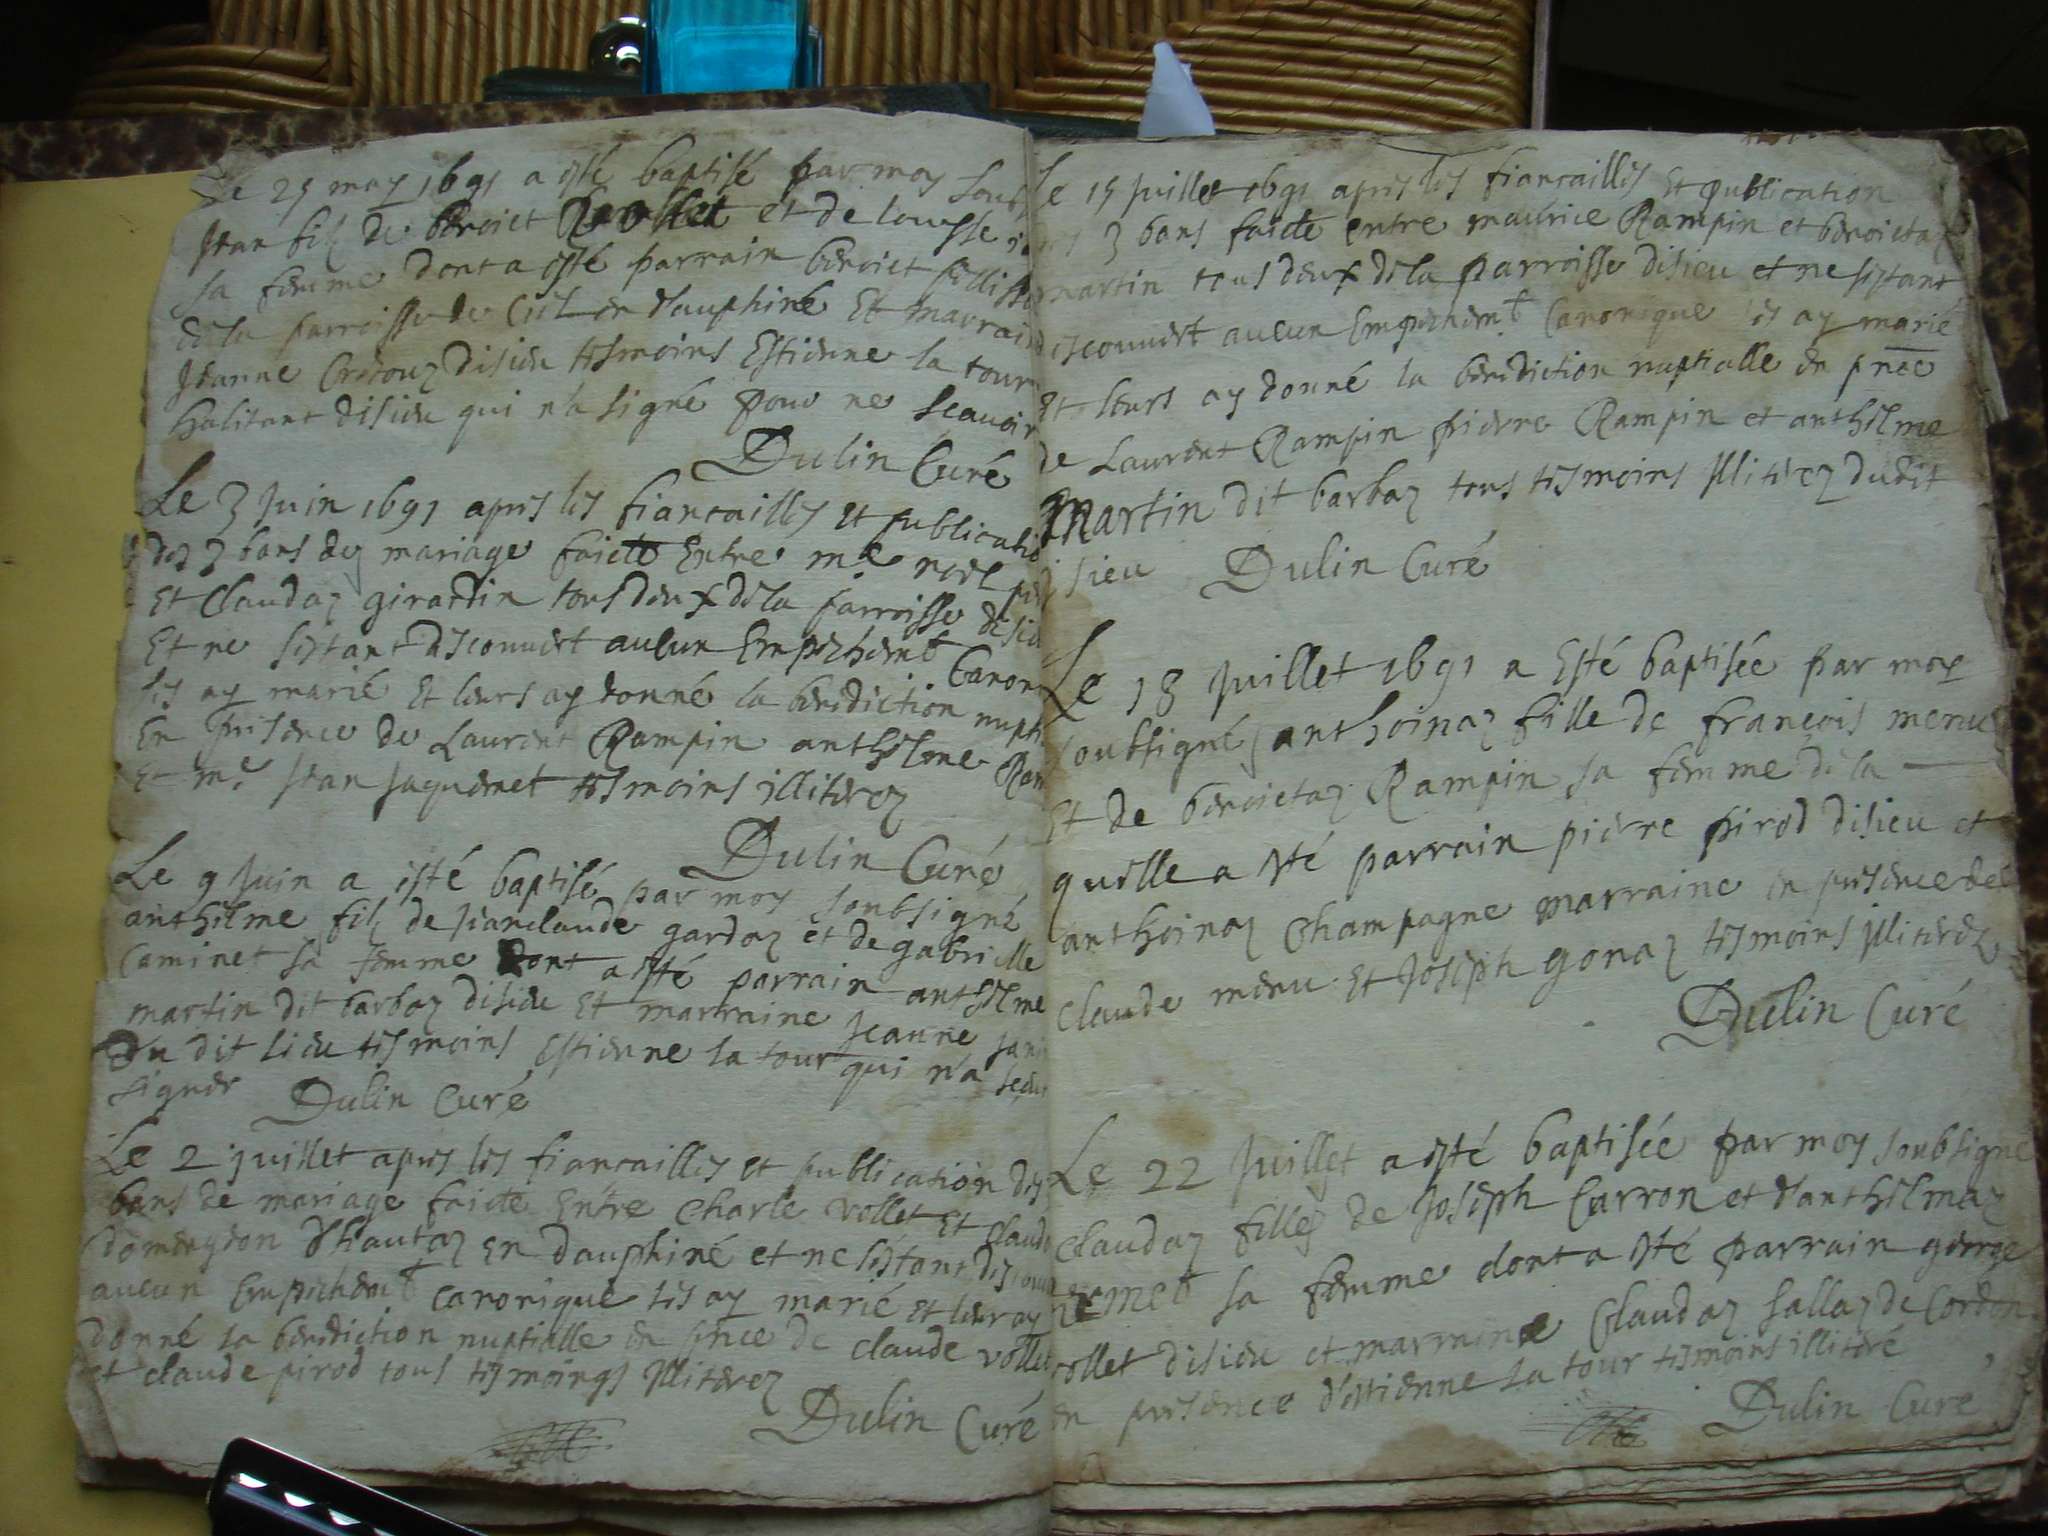 Le 25 may 1691 a esté baptisé par moy soubs
Jean filz de benoict Rvollet et de lousse
sa femme dont a esté parrain benoict
de la parroisse de Ciel en dauphiné Et marrai
Jeanne disieu tesmoins Estienne la tour
habitant disieu qui n'a signé pour ne scauoir
Dulin Curé
Le 3 Juin 1691 apres les fiancailles et publicatio
des 3 bans de mariage faicte Entre me noel
Et Claudaz girardin tous deux de la parroisse desieu
Et ne sestant descouuert aucun Empechemt Canon
les ay marié Et leurs ay donné la benediction nupti
En presence de Laurent Rampin anthelme Ram
Et me Jean Jaquemet tesmoins illiterez
Dulin Curé
Le 9 Juin a esté baptisé par moy soubsigné
anthelme filz de Jeanclaude gardaz et de gabrielle
Caminet sa femme dont a esté parrain anthelme
martin dit barbaz disieu Et marraine Jeanne
du dit lieu tesmoins Estienne la tour qui n'a sceu
signer Dulin Curé
Le 2 juillet apres les fiancailles et publication des
bans de mariage faicte Entre Charle vollet Et Claud
domengeon d'hautaz En dauphiné et ne sestant descou
aucun Empechemt canonique les ay marié et leur ay
donné la benediction nuptialle en pnce de claude vollet
et claude pirod tous tesmoings Illiterez
Dulin Curé
Le 15 Juillet 1691 apres les fiancailles Et publication
des 3 bans faicte entre maurice Rampin et benoictaz
martin tous deux de la parroisse disieu et ne sestant
descouuert aucun Empechemt Canonique les ay marié
Et leurs ay donné la benediction nuptialle en pnce
de Laurent Rampin pierre Rampin et anthelme
Martin dit barbaz tous tesmoins Illiterez dudit
sieu Dulin Curé
Le 18 Juillet 1691 a Esté baptisée par moy
soubsigné anthoinaz fille de françois menu
Et de benoictaz Rampin sa femme de la
quelle a esté parrain pierre pirod disieu et
anthoinaz Champagne marraine en presence de
claude menu Et Joseph gonaz tesmoins Illiterez
Dulin Curé
Le 22 Juillet a esté baptisée par moy soubsigné
Claudaz fille de Joseph Carron et d'anthelmaz
sa femme dont a esté parrain george
vollet disieu et marraine Claudaz sallaz de Cordon
en presence d'estienne la tour tesmoins illiteré
Dulin Curé